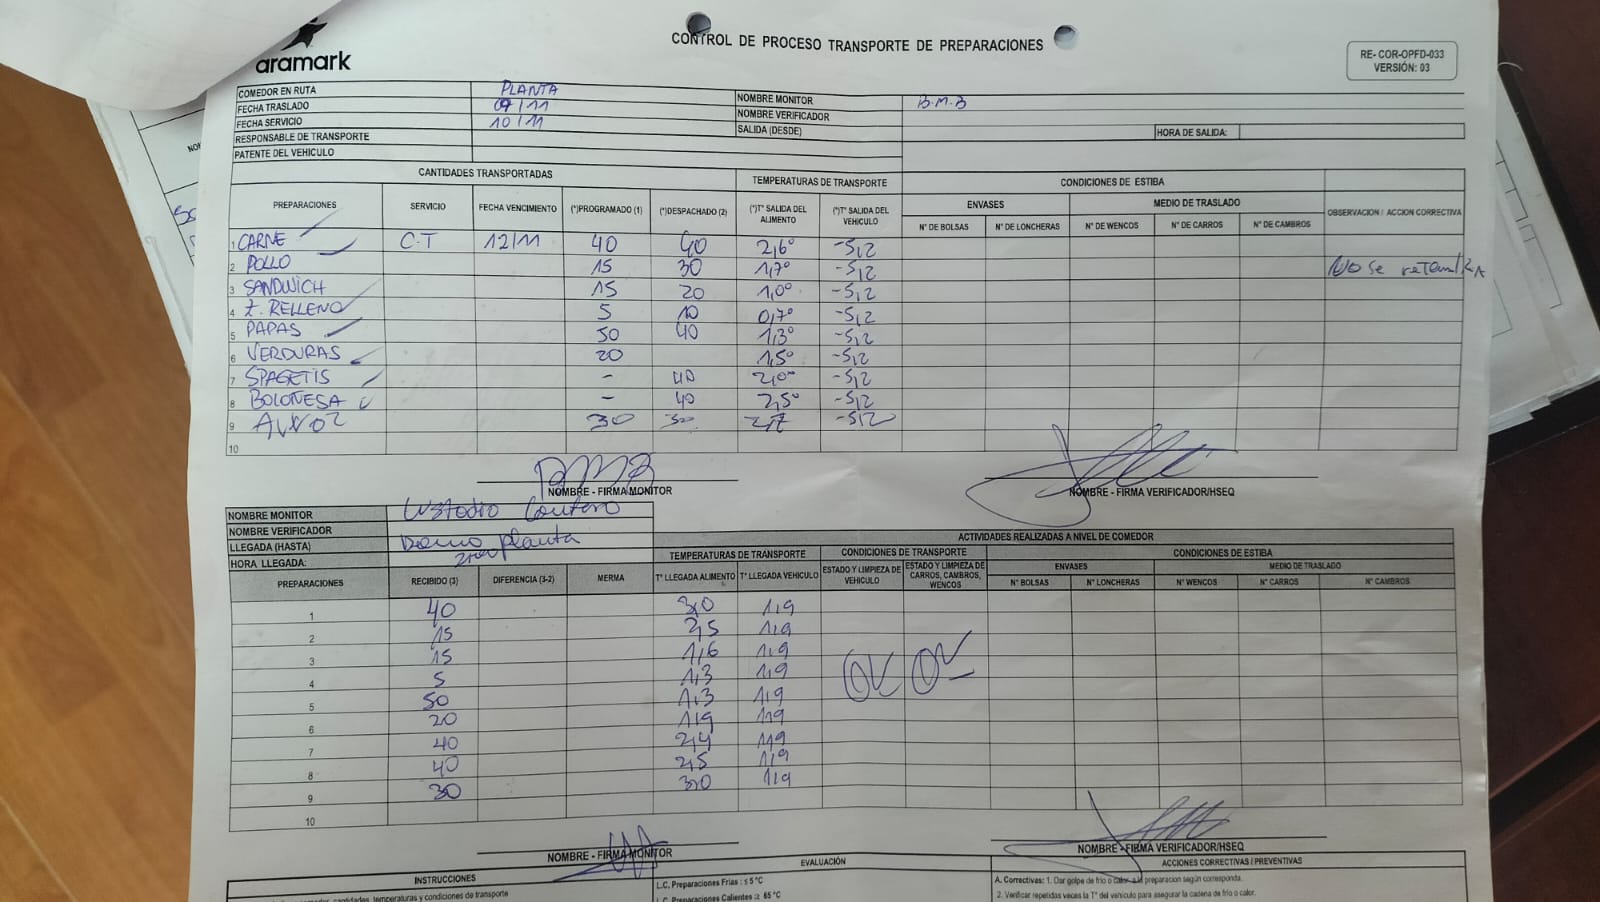 aramark
CONTROL DE PROCESO TRANSPORTE DE PREPARACIONES
RE- COR-OPFD-033
VERSIÓN: 03
COMEDOR EN RUTA PLANTA NOMBRE MONITOR B.M.B
FECHA TRASLADO 09/11 NOMBRE VERIFICADOR
FECHA SERVICIO 10/11 SALIDA (DESDE) HORA DE SALIDA:
RESPONSABLE DE TRANSPORTE
PATENTE DEL VEHICULO
CANTIDADES TRANSPORTADAS TEMPERATURAS DE TRANSPORTE CONDICIONES DE ESTIBA
PREPARACIONES SERVICIO FECHA VENCIMIENTO (*)PROGRAMADO (1) (*)DESPACHADO (2) (*)T° SALIDA DEL ALIMENTO (*)T° SALIDA DEL VEHICULO ENVASES MEDIO DE TRASLADO OBSERVACION / ACCION CORRECTIVA
N° DE BOLSAS N° DE LONCHERAS N° DE WENCOS N° DE CARROS N° DE CAMBROS
1 CARNE C.T 12/11 40 40 2,6° -5,2
2 POLLO 15 30 1,7° -5,2 NO Se
3 SANDWICH 15 20 1,0° -5,2
4 Z. RELLENO 5 10 0,7° -5,2
5 PAPAS 50 40 1,3° -5,2
6 VERDURAS 20 1,5° -5,2
7 SPAGETIS - 40 2,0° -5,2
8 BOLOÑESA - 40 2,5° -5,2
9 Arroz 30 30 2,7 -5,2
10
BMB
NOMBRE - FIRMA MONITOR NOMBRE - FIRMA VERIFICADOR/HSEQ
NOMBRE MONITOR Custodio
NOMBRE VERIFICADOR
LLEGADA (HASTA) planta
HORA LLEGADA:
ACTIVIDADES REALIZADAS A NIVEL DE COMEDOR
TEMPERATURAS DE TRANSPORTE CONDICIONES DE TRANSPORTE CONDICIONES DE ESTIBA
PREPARACIONES RECIBIDO (3) DIFERENCIA (3-2) MERMA T° LLEGADA ALIMENTO T° LLEGADA VEHICULO ESTADO Y LIMPIEZA DE VEHICULO ESTADO Y LIMPIEZA DE CARROS, CAMBROS, WENCOS ENVASES MEDIO DE TRASLADO
N° BOLSAS N° LONCHERAS N° WENCOS N° CARROS N° CAMBROS
1 40 3,0 1,9
2 15 2,5 1,9
3 15 1,6 1,9
4 5 1,3 1,9 OK OK
5 50 1,3 1,9
6 20 1,9 1,9
7 40 2,4 1,9
8 40 2,5 1,9
9 30 3,0 1,9
10
NOMBRE - FIRMA MONITOR NOMBRE - FIRMA VERIFICADOR/HSEQ
INSTRUCCIONES EVALUACIÓN ACCIONES CORRECTIVAS / PREVENTIVAS
cantidades, temperaturas y condiciones de transporte
L.C. Preparaciones Frias : ≤ 5 °C
L.C. Preparaciones Calientes : ≥ 65 °C
A. Correctivas: 1. Dar golpe de frio o calor a la preparacion según corresponda.
2. Verificar repetidas veces la T° del vehiculo para asegurar la cadena de frio o calor.